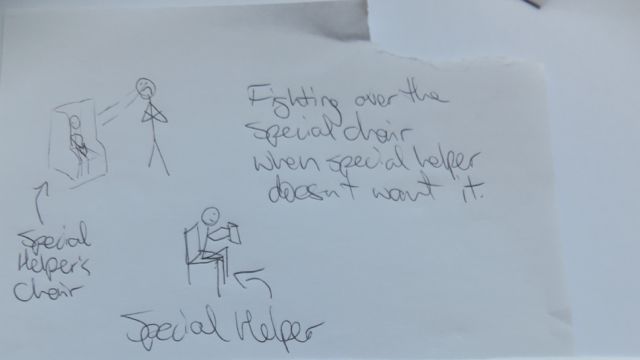 Fighting over the
special chair
when special helper
doesn't want it.
Special
Helper's
Chair
Special Helper